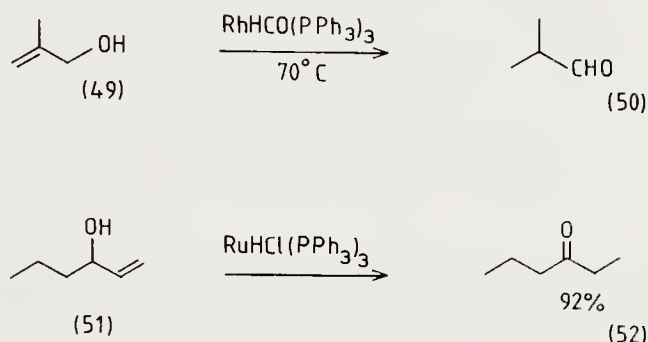 OH
RhHCO(PPh₃)₃
70°C
CHO
(49)
(50)
OH
RuHCl(PPh₃)₃
O
92%
(51)
(52)